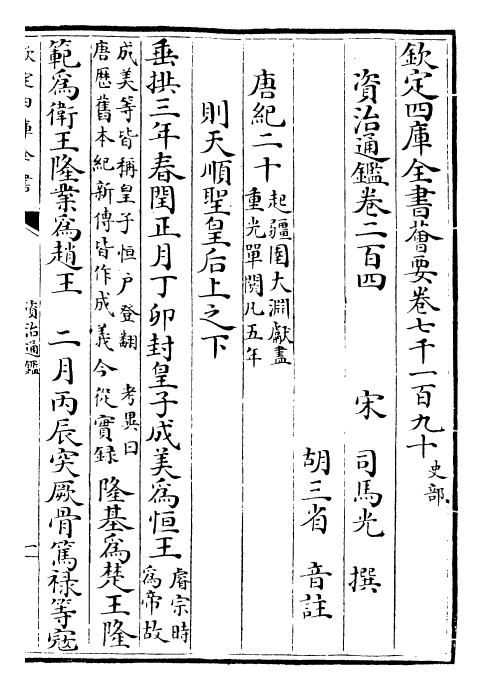 欽定四庫全書薈要卷七千一百九十 史部
資治通鑑卷二百四 宋 司馬光 撰
胡三省 音註
唐紀二十 起彊圉大淵獻盡
重光單閼凡五年
則天順聖皇后上之下
垂拱三年春閏正月丁卯封皇子成美為恒王 睿宗時
為帝故
成美等皆稱皇子恒户登翻 考異曰
唐歷舊本紀新傳皆作成義今從實錄 隆基為楚王隆
範為衛王隆業為趙王 二月丙辰突厥骨篤祿等寇
欽定四庫全書
資治通鑑